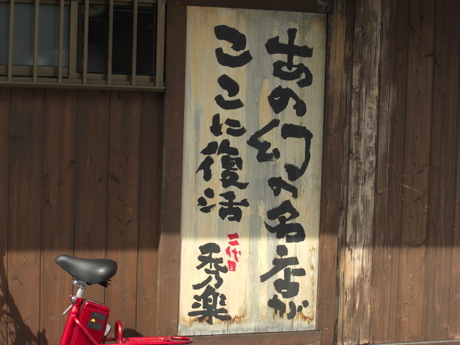 あの幻の名店が
ここに復活
二代目
秀楽